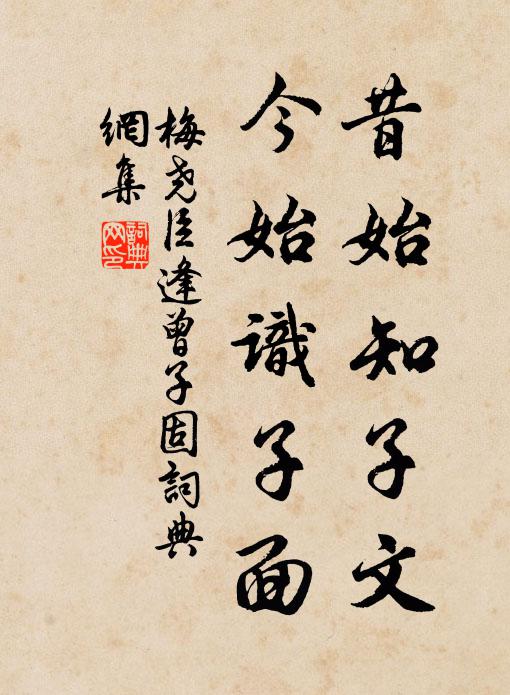 昔始知子文
今始識子面
梅尧臣逢曾子固詞典
網集
詞典
网印